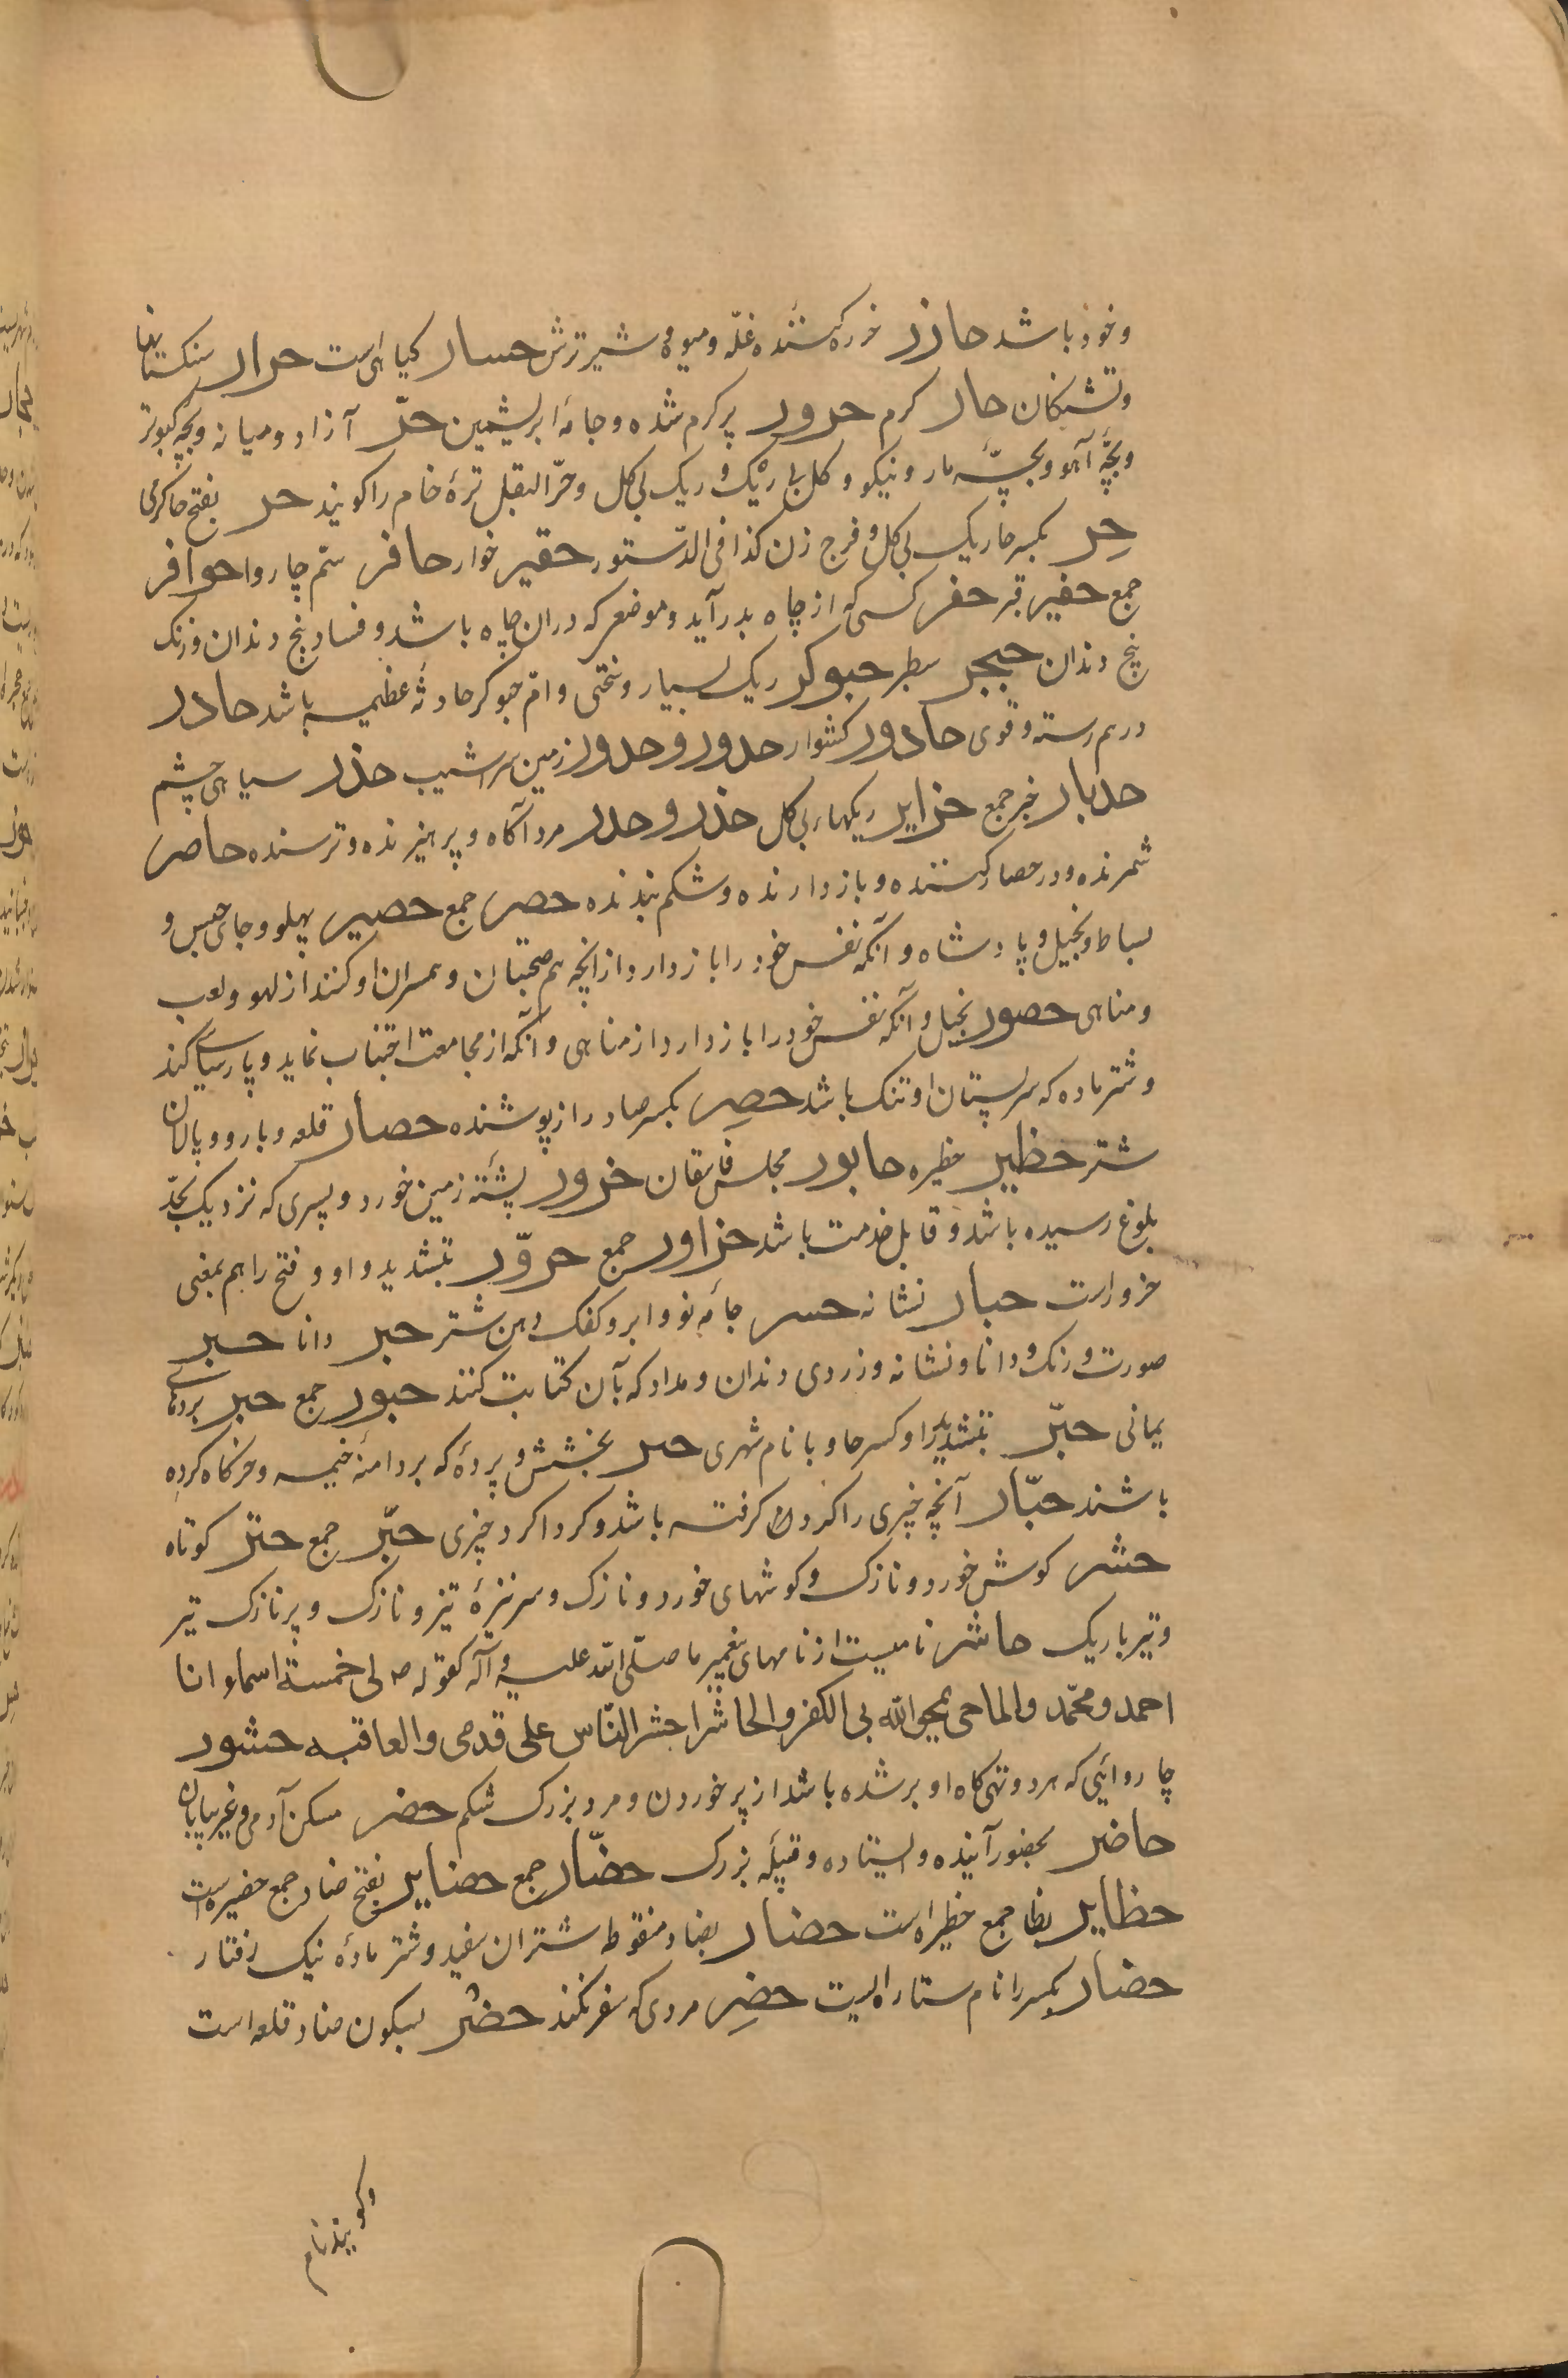 و خود باشد حازر خوره کننده غلّه و میوه و شیر ترش حسار کیاهی است حرار سنکستانها
و تشنکان حار کرم حرور پر کرم شده و جامهٔ ابریشمین حرّ آزاد و میانه و بچهٔ کبوتر
و بچّهٔ آهو و بچّهٔ مار و نیکو و کل بی ریک و ریک بی کل و حرّ البقل ترهٔ خام را کویند حر بفتح حا کرمی
حِر بکسر حا ریک بی کل و فرج زن کذا فی الدّستور حقیر خوار حافر سّم چاروا حوافر
جمع حفیر قبر حفر کسی که از چاه بدر آید و موضعی که در ان چاه باشد و فساد بیخ دندان و زنک
بیخ دندان حبجر سطبر حبوکر ریک بسیار و سختی و امّ حبوکر حادثهٔ عظیمه باشد حادر
درهم رسته و قوی حادور کشوار حدور و حدور زمین سراشیب حذر سیاهی چشم
حدبار خبر جمع حزایر ریکهای بی کل حذر و حدر مرد آکاه و پرهیزنده و ترسنده حاصر
شمرنده و در حصار کننده و بازدارنده و شکم بندنده حصر جمع حصیر پهلو و جای حبس و
بساط و بخیل و پادشاه و آنکه نفس خود را بازدارد از انچه هم صحبتان و همسران او کنند از لهو و لعب
و مناهی حصور بخیل و آنکه نفس خود را بازدارد از مناهی و آنکه از مجامعت اجتناب نماید و پارسائی کند
و شتر ماده که سر پستان او تنک باشد حصِر بکسر صاد راز پوشنده حصار قلعه و بارو و پالان
شتر حظیر حظیره حابور مجلس فاسقان حزور پشتهٔ زمین خورد و پسری که نزدیک بحدّ
بلوغ رسیده باشد و قابل خدمت باشد حزاور جمع حروّر بتشدید واو و فتح را هم بمعنی
حزور است حبار نشانه حسر جامهٔ نو و ابر و کفک دهن شتر حبر دانا حبر
صورت و رنک و دانا و نشانه و زردی دندان و مداد که بآن کتابت کنند حبور جمع حبر بردهای
یمانی حبّر بتشدید را و کسر حا و با نام شهری حبر بخشش و پردهٔ که بر دامنهٔ خیمه و خرکاه کرده
باشند حبّار آنچه چیزی را کردن کرفته باشد و کردا کرد چیزی حبّر جمع حبتر کوتاه
حشر کوش خورد و نازک و کوشهای خورد و نازک و سر نیزهٔ تیز و نازک و پر نازک تیر
و تیر باریک حاشر نامیست از نامهای پیغمبر ما صلّی الله علیه و آله کقوله ص لی خمسة اسماء انا
احمد و محمّد و الماحی یمحی اللّه بی الکفر و الحاشر احشر النّاس علی قدمی و العاقبه حشور
چاروائی که هر دو تهی کاه او بر شده باشد از پر خوردن و مرد بزرک شکم حضر مسکن آدمی و غیر بیابان
حاضر بحضور آینده و ایستاده و قبیلهٔ بزرک حضّار جمع حضایر بفتح ضاد جمع حضیره است
حظایر بظا جمع حظیره است حضار بضاد منقوطه شتران سفید و شتر مادهٔ نیک رفتار
حضار بکسر را نام ستاره ایست حضِر مردی که سفر نکند حضْر بسکون ضاد قلعه است
و کویند نام